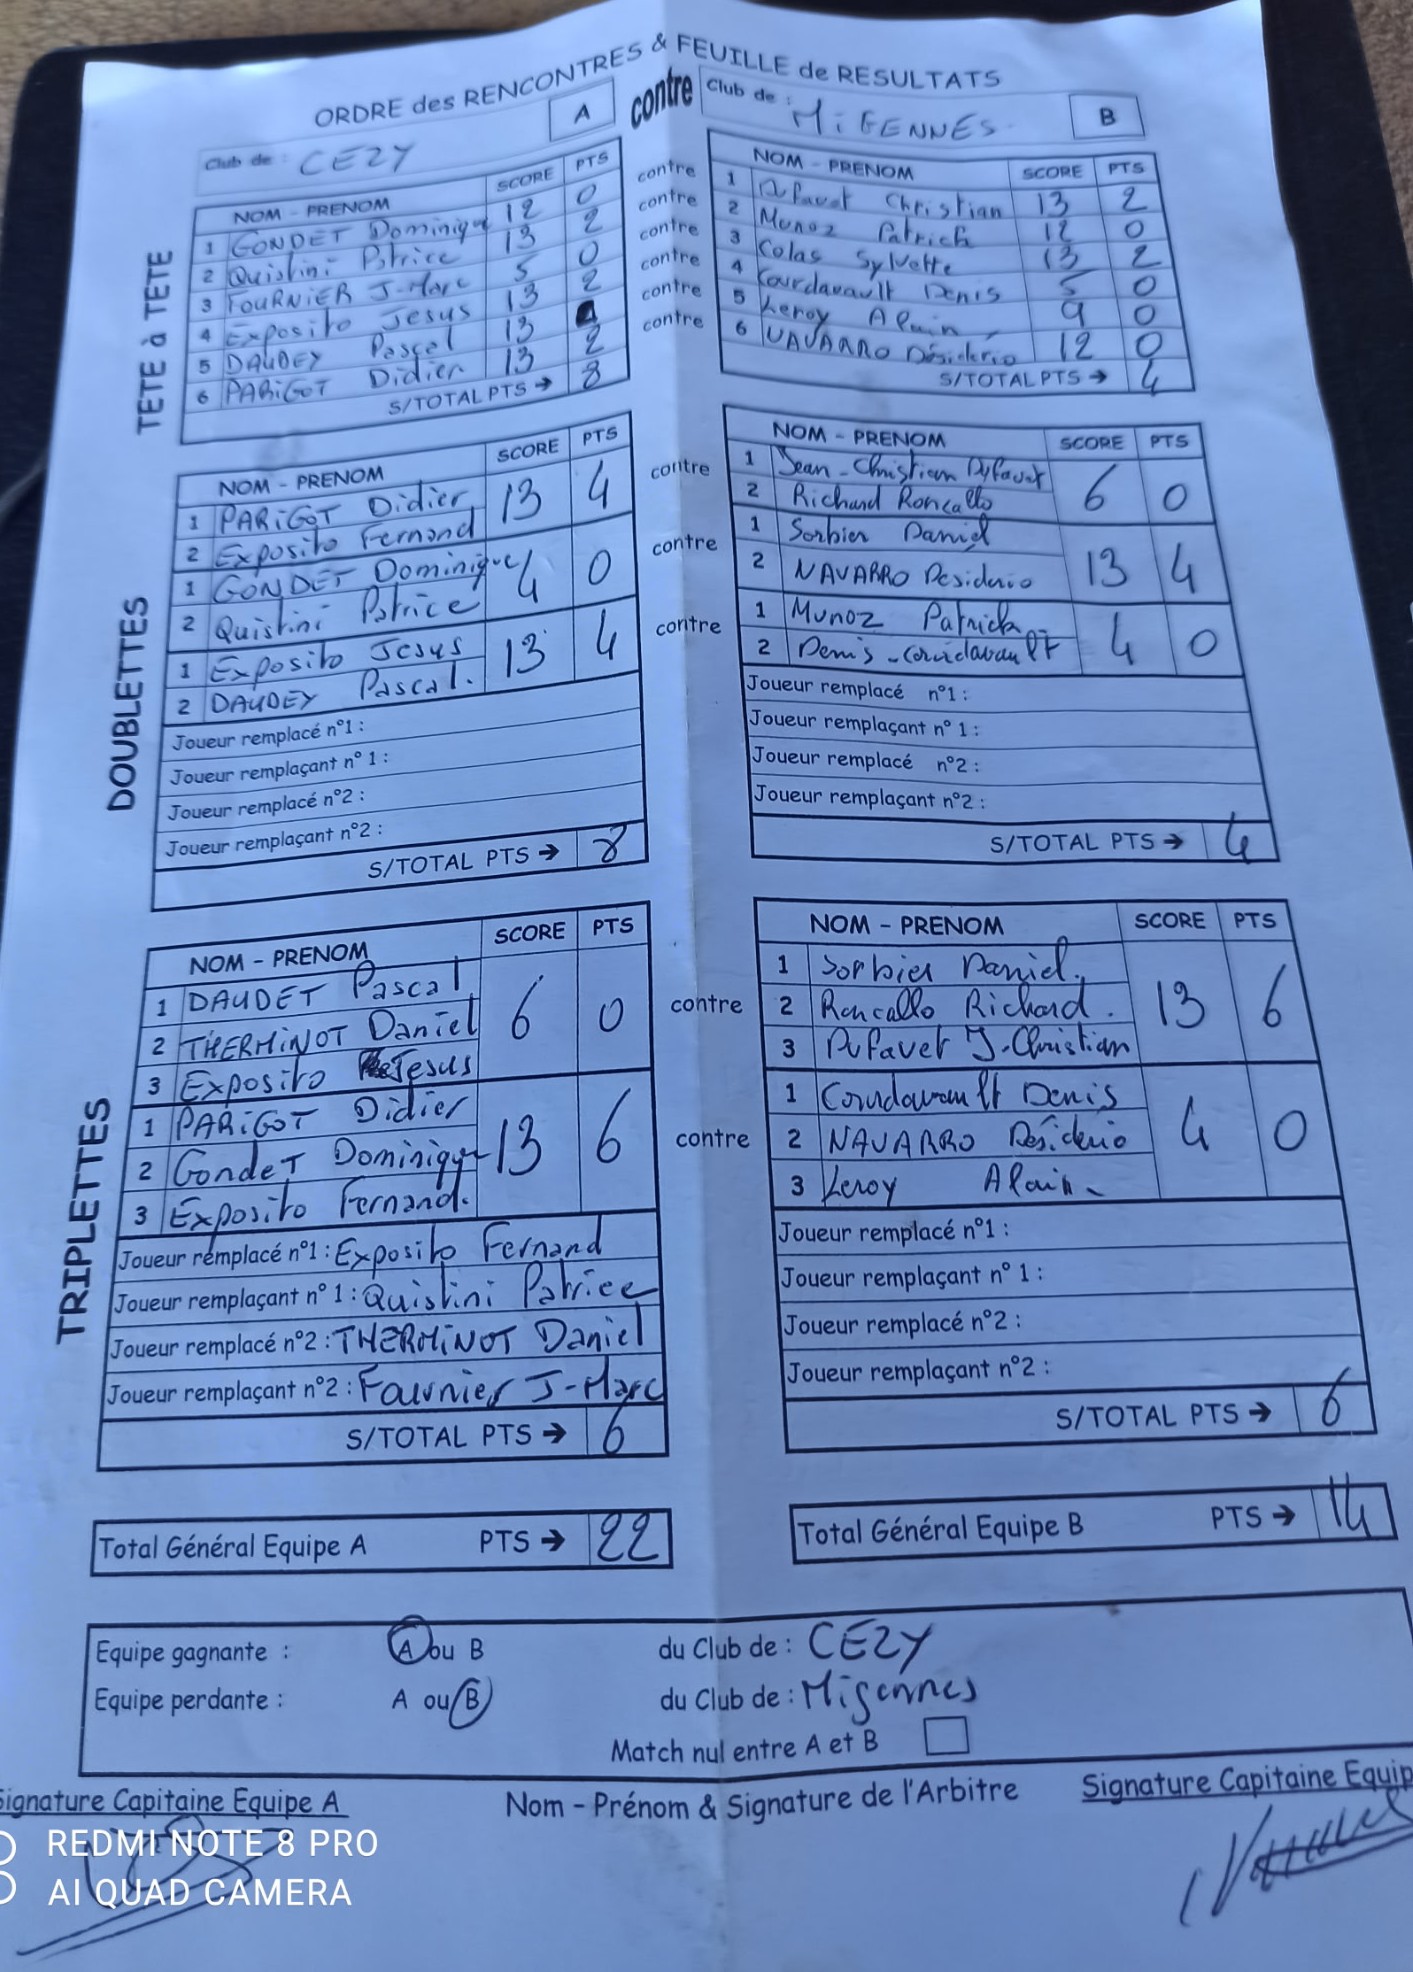 ORDRE des RENCONTRES & FEUILLE de RESULTATS
A contre B
Club de : CEZY
Club de : MiGENNES
TETE à TETE
NOM - PRENOM SCORE PTS
1 GONDET Dominique 12 0
2 Quistini Patrice 13 2
3 FOURNIER J-Marc 5 0
4 Exposito Jesus 13 2
5 DAUDEY Pascal 13
6 PARiGOT Didier 13 2
S/TOTAL PTS → 8
contre
contre
contre
contre
contre
contre
NOM - PRENOM SCORE PTS
1 Dufavet Christian 13 2
2 Munoz Patrick 12 0
3 Colas Sylvette 13 2
4 Courdavault Denis 5 0
5 Leroy Alain 9 0
6 NAVARRO Désidério 12 0
S/TOTAL PTS → 4
DOUBLETTES
NOM - PRENOM SCORE PTS
1 PARiGOT Didier 13 4
2 Exposito Fernand
1 GONDET Dominique 4 0
2 Quistini Patrice
1 Exposito Jesus 13 4
2 DAUDEY Pascal.
Joueur remplacé n°1 :
Joueur remplaçant n° 1 :
Joueur remplacé n°2 :
Joueur remplaçant n°2 :
S/TOTAL PTS → 8
contre
contre
contre
NOM - PRENOM SCORE PTS
1 Jean-Christian Dufavet 6 0
2 Richard Roncallo
1 Sorbier Daniel 13 4
2 NAVARRO Desiderio
1 Munoz Patrick 4 0
2 Denis-Courdavault
Joueur remplacé n°1 :
Joueur remplaçant n° 1 :
Joueur remplacé n°2 :
Joueur remplaçant n°2 :
S/TOTAL PTS → 4
TRIPLETTES
NOM - PRENOM SCORE PTS
1 DAUDET Pascal 6 0
2 THERMiNOT Daniel
3 Exposito Jesus
1 PARiGOT Didier 13 6
2 GondeT Dominique
3 Exposito Fernand.
Joueur remplacé n°1 : Exposito Fernand
Joueur remplaçant n° 1 : Quistini Patrice
Joueur remplacé n°2 : THERMiNOT Daniel
Joueur remplaçant n°2 : Fournier J-Marc
S/TOTAL PTS → 6
contre
contre
NOM - PRENOM SCORE PTS
1 Sorbier Daniel. 13 6
2 Roncallo Richard.
3 Dufavet J-Christian
1 Courdavault Denis 4 0
2 NAVARRO Désiderio
3 Leroy Alain
Joueur remplacé n°1 :
Joueur remplaçant n° 1 :
Joueur remplacé n°2 :
Joueur remplaçant n°2 :
S/TOTAL PTS → 6
Total Général Equipe A PTS → 22
Total Général Equipe B PTS → 14
Equipe gagnante : A ou B du Club de : CEZY
Equipe perdante : A ou B du Club de : Migennes
Match nul entre A et B
Signature Capitaine Equipe A
Nom - Prénom & Signature de l'Arbitre
Signature Capitaine Equip
REDMI NOTE 8 PRO
AI QUAD CAMERA